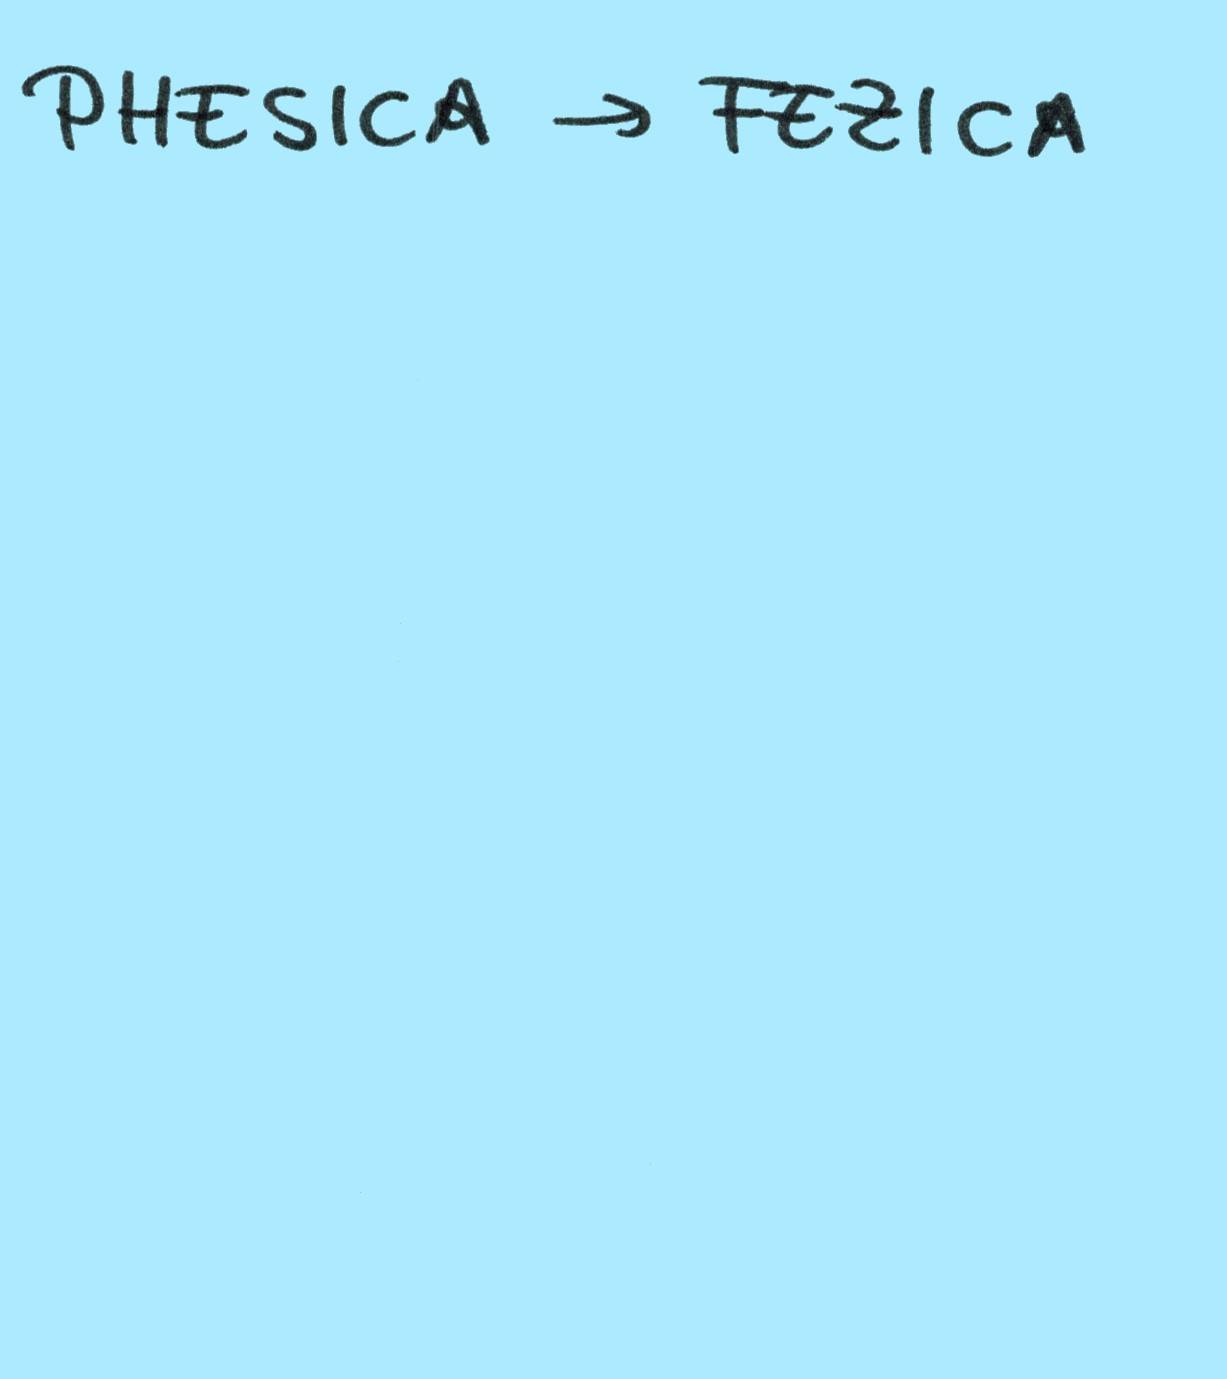 PHESICA → FEZICA